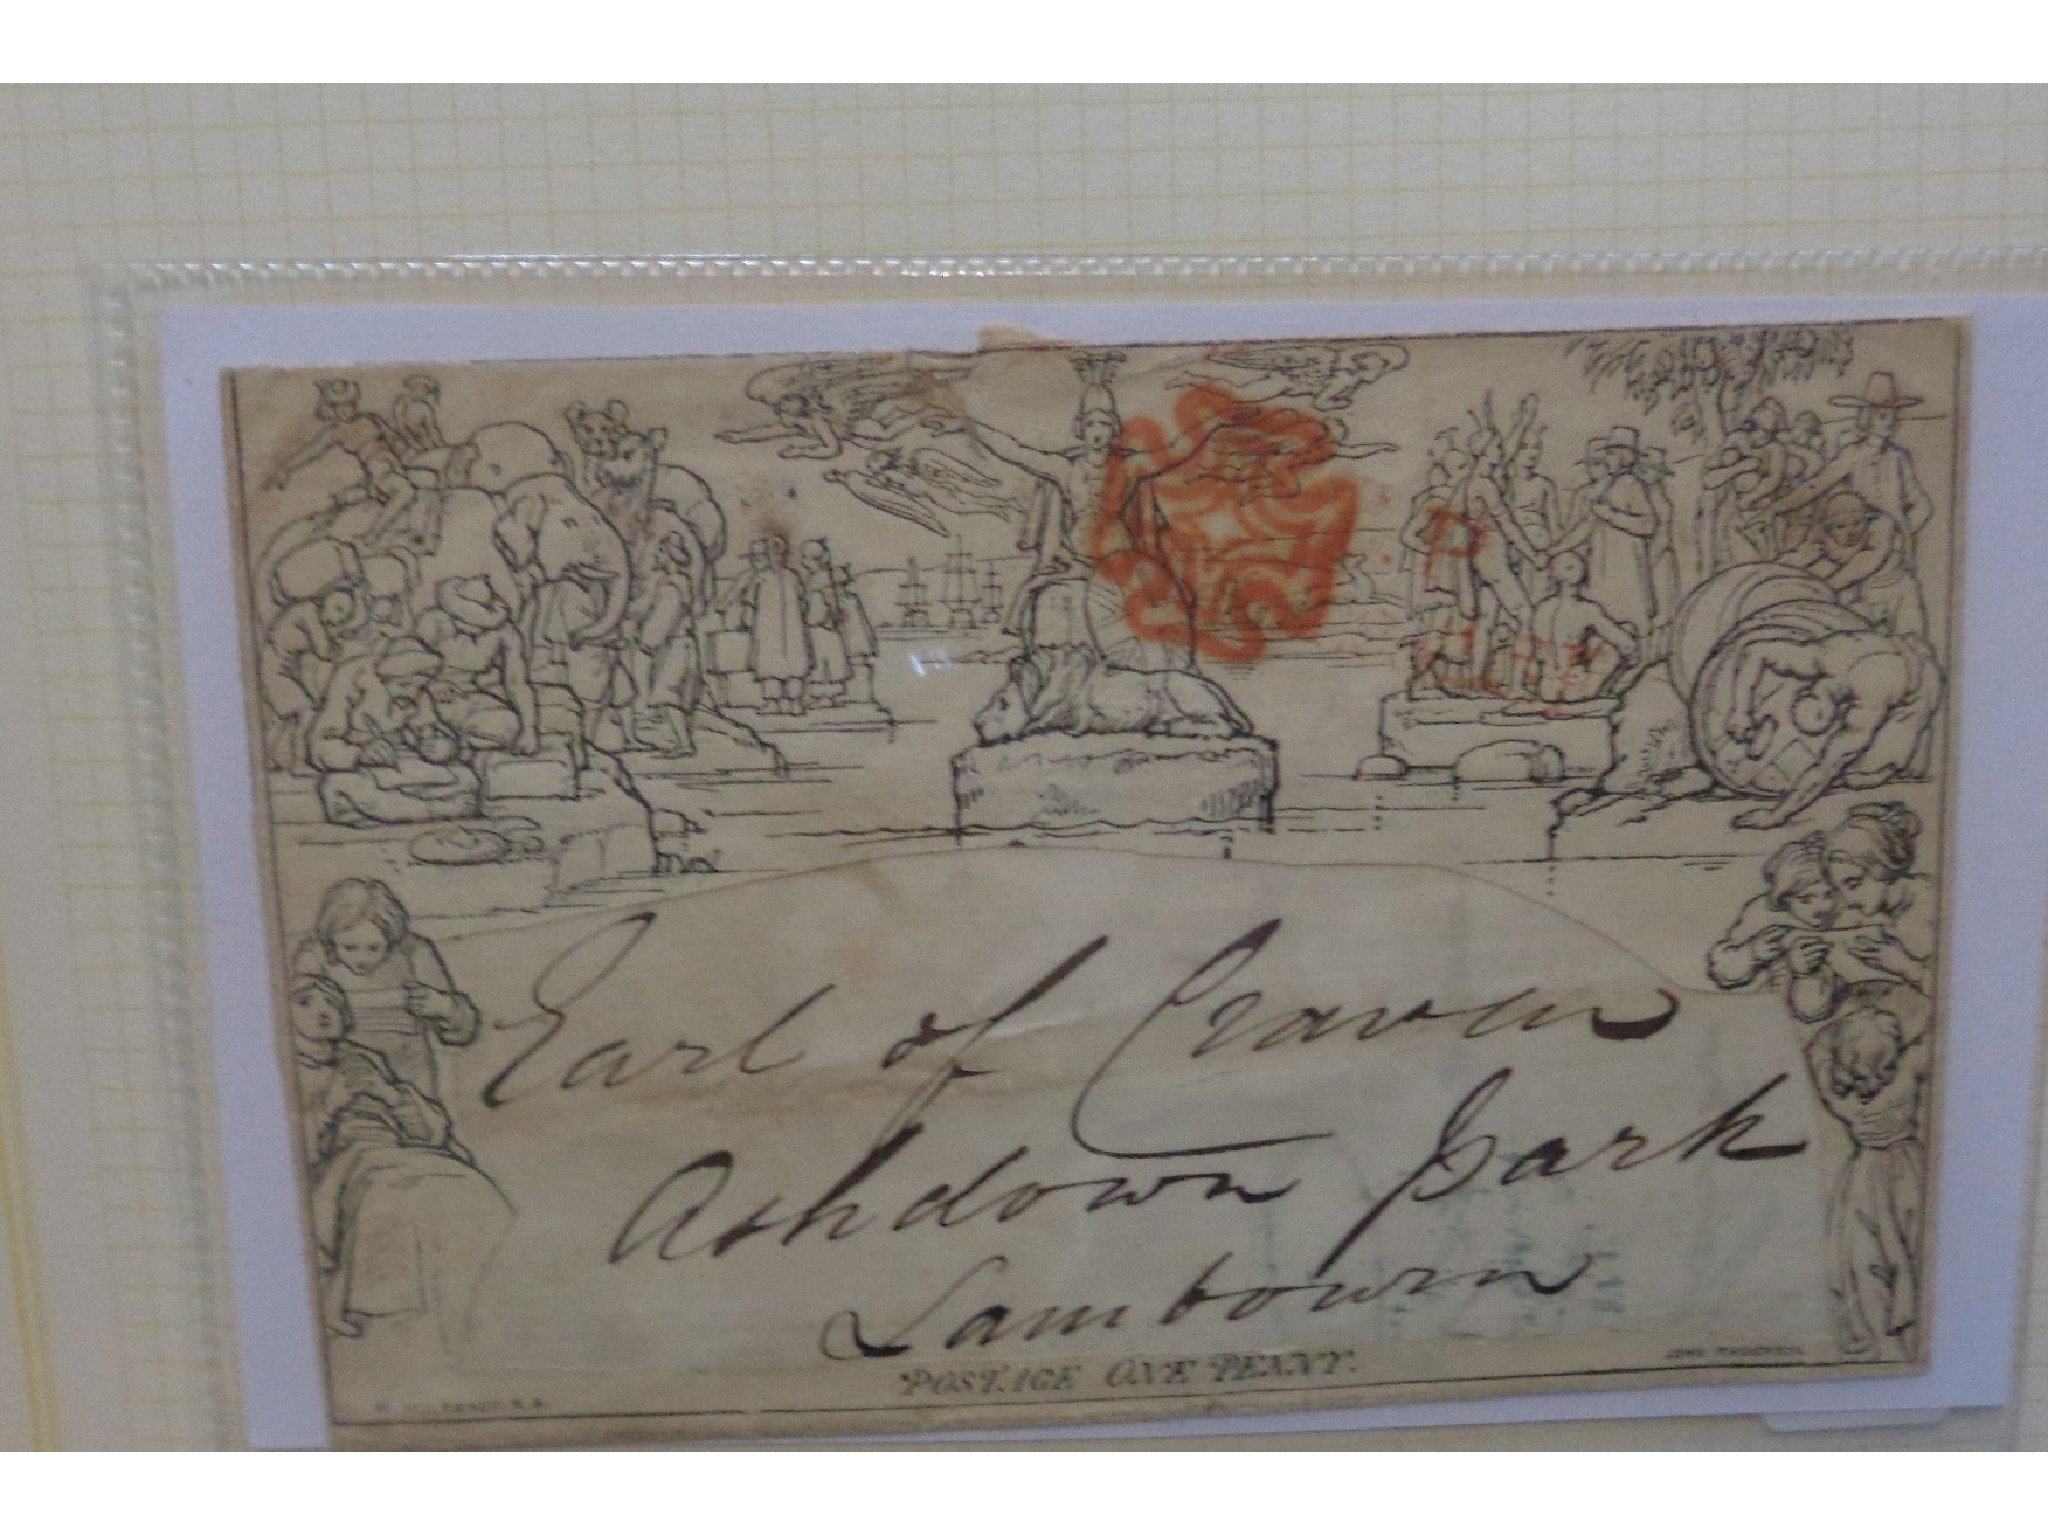 Earl of Craven
Ashdown Park
Lambourn
POSTAGE ONE PENNY.
JOHN THOMPSON
R.A.